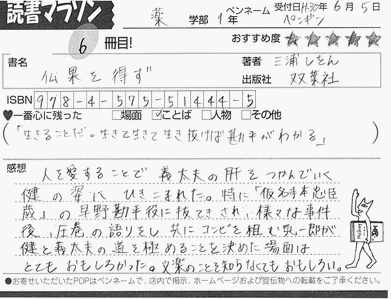 読書マラソン 薬 学部 1年 ペンネーム ペンギン 受付日H30年6月5日
6 冊目! おすすめ度 ★★★★★
書名 仏果を得ず 著者 三浦しをん
出版社 双葉社
ISBN 978-4-575-51444-5
♥一番心に残った □場面 ☑ことば □人物 □その他
「生きることだ。生きて生きて生き抜けば勘平がわかる」
感想 人を愛することで義太夫の肝をつかんでいく
健の姿にひきこまれた。特に「仮名手本忠臣
蔵」の早野勘平役に抜てきされ、様々な事件
後、圧巻の語りをし、共にコンビを組む兎一郎が
健と義太夫の道を極めることを決めた場面は
とてもおもしろかった。文楽のことを知らなくてもおもしろい。
●お寄せいただいたPOPはペンネームで、店内で掲示、ホームページおよび宣伝物への転載をご了承ください。